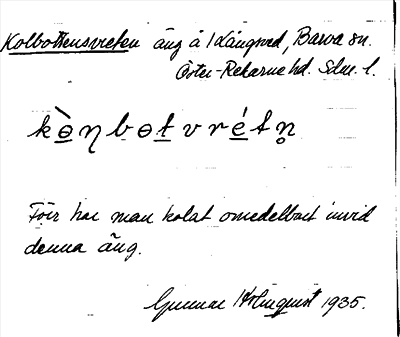 Kolbottensvreten äng å 1 Långsved, Barva sn.
Öster-Rekarne hd. Sdm. l.
kò̱ŋbo̱tvré̱tn̥
Förr har man kolat omedelbart invid
denna äng.
Gunnar Holmquist 1935.